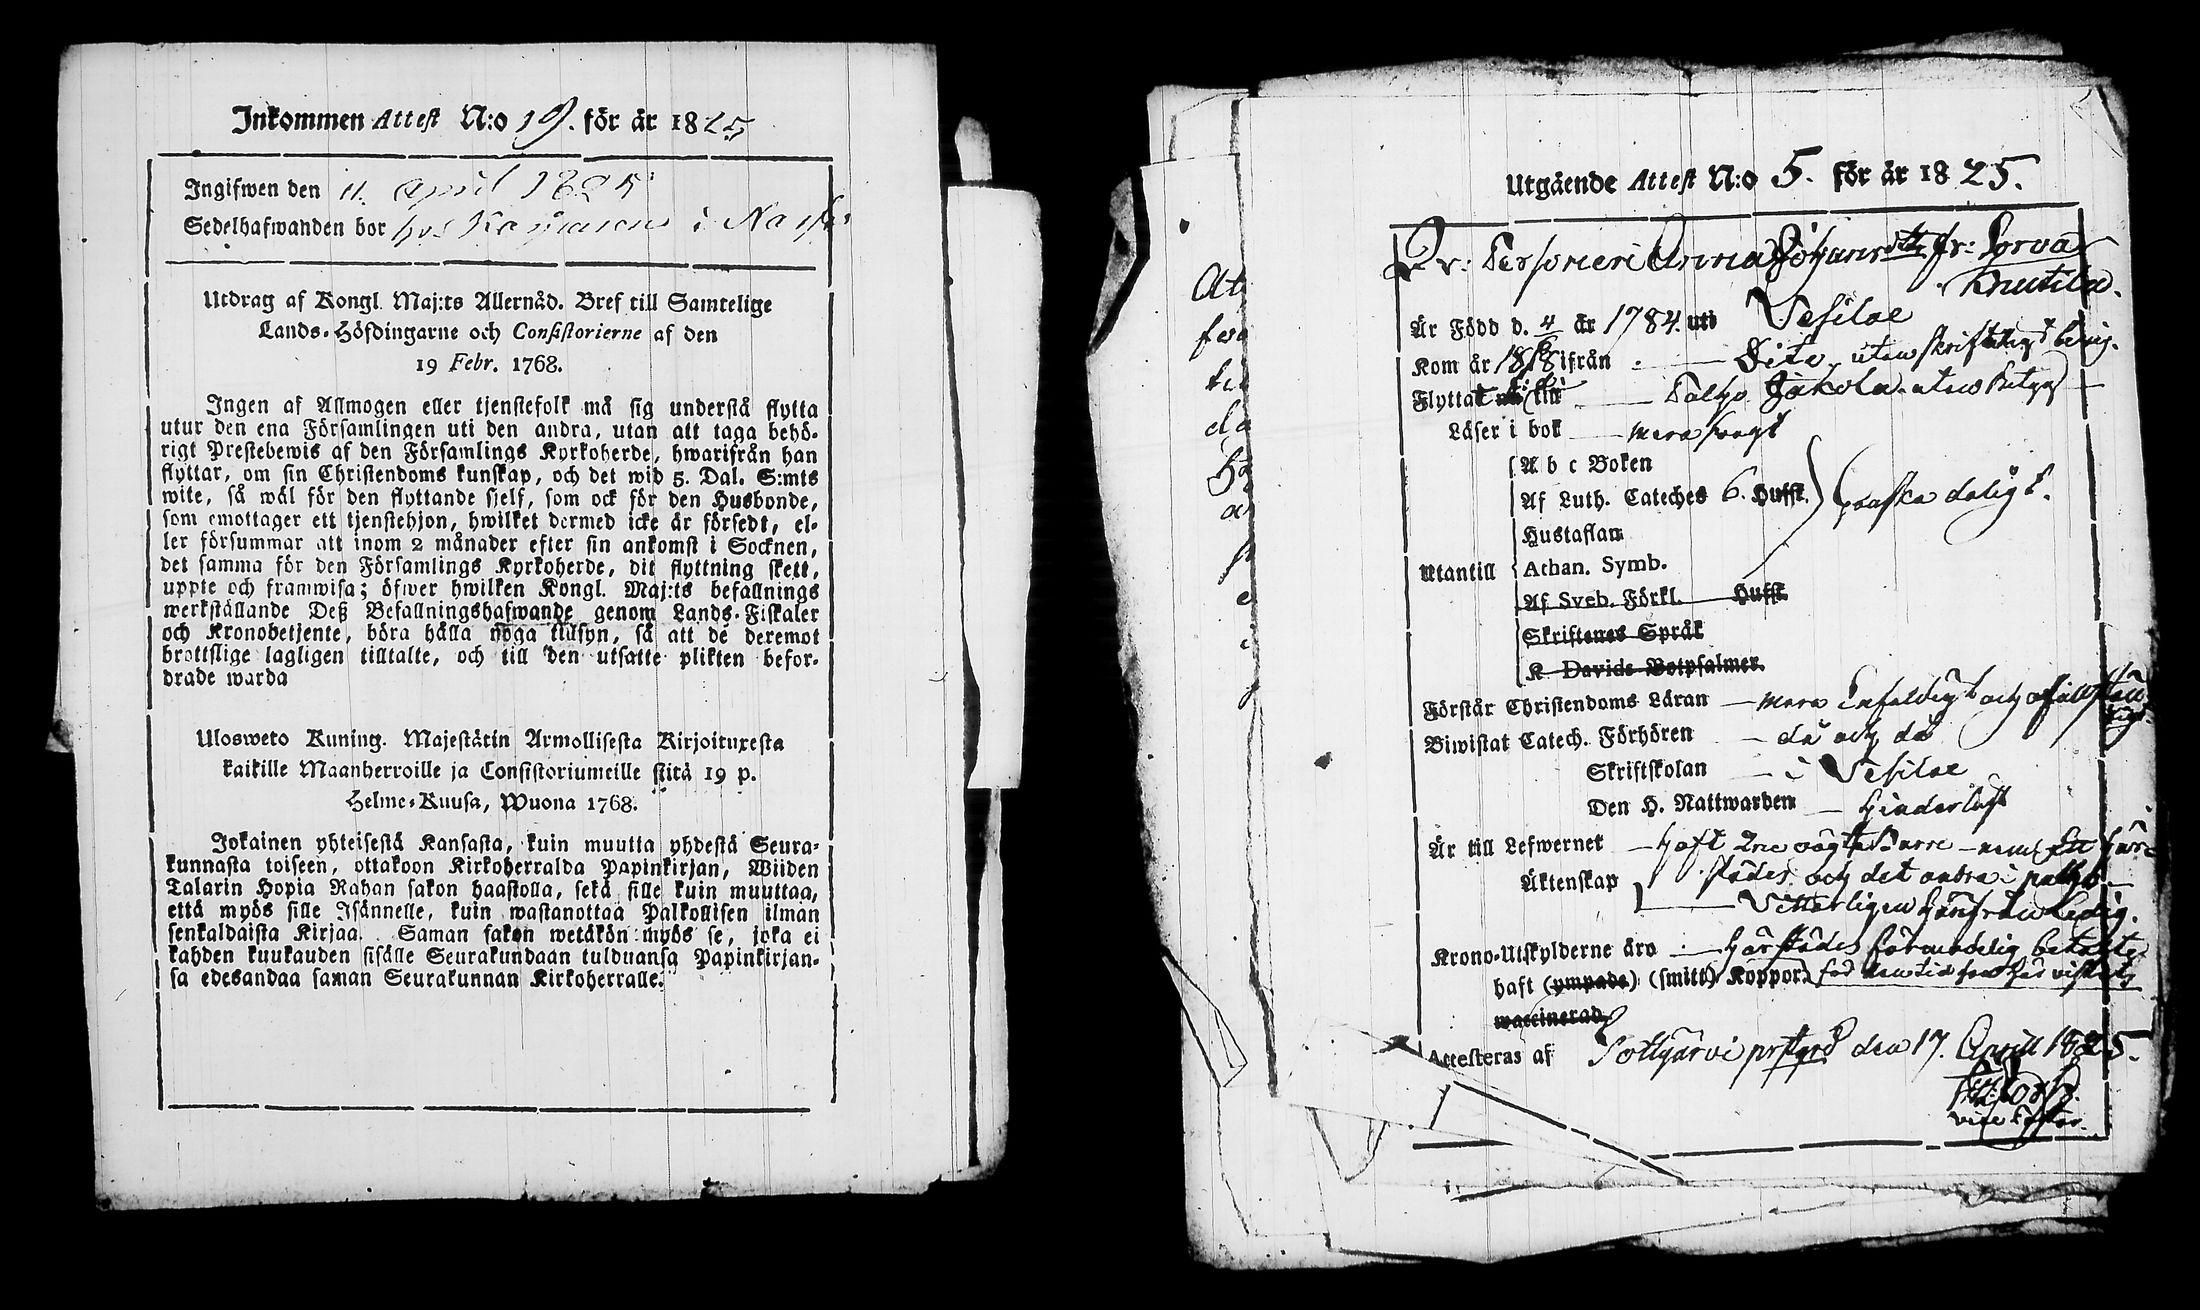 Inkommen Attest N:o 19. för år 1825
Ingifwen den 11. April 1825
Sedelhafwanden bor hos i
Utdrag af Kongl. Maj:ts Allernåd. Bref till Samtelige
Lands-Höfdingarne och Consistorierne af den
19 Febr. 1768.
Ingen af Allmogen eller tjenstefolk må sig understå flytta
utur den ena Församlingen uti den andra, utan att taga behö-
rigt Prestebewis af den Församlings Kyrkoherde, hwarifrån han
flyttar, om sin Christendoms kunskap, och det wid 5. Dal. S:mts
wite, så wäl för den flyttande sjelf, som ock för den Husbonde,
som emottager ett tjenstehjon, hwilket dermed icke är försedt, el-
ler försummar att inom 2 månader efter sin ankomst i Socknen,
det samma för den Församlings Kyrkoherde, dit flyttning skett,
uppte och framwisa; öfwer hwilken Kongl. Maj:ts befallnings
werkställande Deß Befallningshafwande genom Lands-Fiskaler
och Kronobetjente, böra hålla noga tillsyn, så att de deremot
brottslige lagligen tilltalte, och till den utsatte plikten befor-
drade warda
Ulosweto Kuning. Majestätin Armollisesta Kirjoituxesta
kaikille Maanherroille ja Consistoriumeille siitä 19 p.
Helme-Kuusa, Wuona 1768.
Jokainen yhteisestä Kansasta, kuin muutta yhdestä Seura-
kunnasta toiseen, ottakoon Kirkoherralda Papinkirjan, Wiiden
Talarin Hopia Rahan sakon haastolla, sekä sille kuin muuttaa,
että myös sille Isännelle, kuin wastanottaa Palkollisen ilman
senkaldaista Kirjaa. Saman sakon wetäkön myös se, joka ei
kahden kuukauden sisälle Seurakundaan tulduansa Papinkirjan-
sa edesandaa saman Seurakunnan Kirkoherralle.
Utgående Attest N:o 5. för år 1825.
Anna Johansdtr fr: Sorva
Knutila.
Är Född d. 4 år 1784. uti Vesilax
Kom år 1818 ifrån Dito utan skriftligt betyg.
Flyttat till Jakola utan betyg
Läser i bok mera svagt
A b c Boken
Af Luth. Cateches 6. Hufst. ganska dåligt.
Hustaflan
Utantill Athan. Symb.
Af Sveb. Förkl. Hufst.
Skriftenes Språk
K Davids Botpsalmer.
Förstår Christendoms Läran mera enfaldigt och
Biwistat Catech. Förhören då och då
Skriftskolan i Vesilax
Den H. Nattwarden hinderlöst
Är till Lefwernet haft 2ne oägta Barn
Äktenskap städes och det andra i
Vitterligen härifrån Ledig.
Krono-Utskylderne äro härstädes förmodelig betalte
haft (ympade) (smitt) Koppor. för den tid hon här vistats
waccinerad
Attesteras af Pottjärvi prstgrd den 17. Aprill 1825.
vice Pastor.